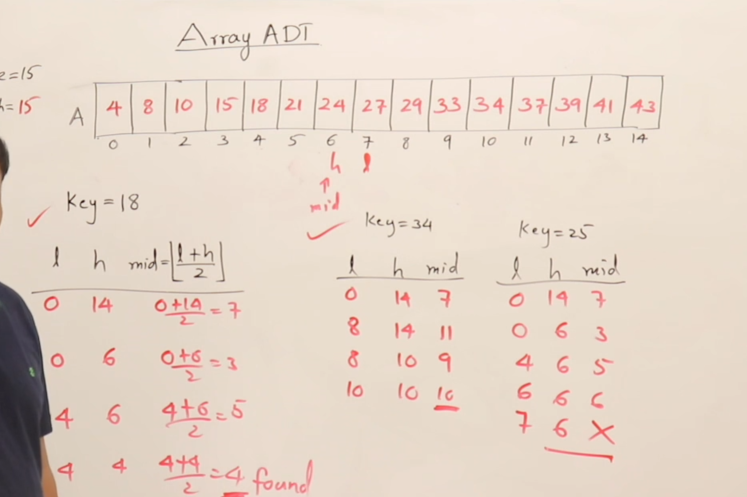 Array ADT
=15
=15
A 4 8 10 15 18 21 24 27 29 33 34 37 39 41 43
0 1 2 3 4 5 6 7 8 9 10 11 12 13 14
h l
↑
mid
✓ Key=18
l h mid=⌊l+h/2⌋
0 14 0+14/2=7
0 6 0+6/2=3
4 6 4+6/2=5
4 4 4+4/2=4 found
✓ Key=34
l h mid
0 14 7
8 14 11
8 10 9
10 10 10
Key=25
l h mid
0 14 7
0 6 3
4 6 5
6 6 6
7 6 X